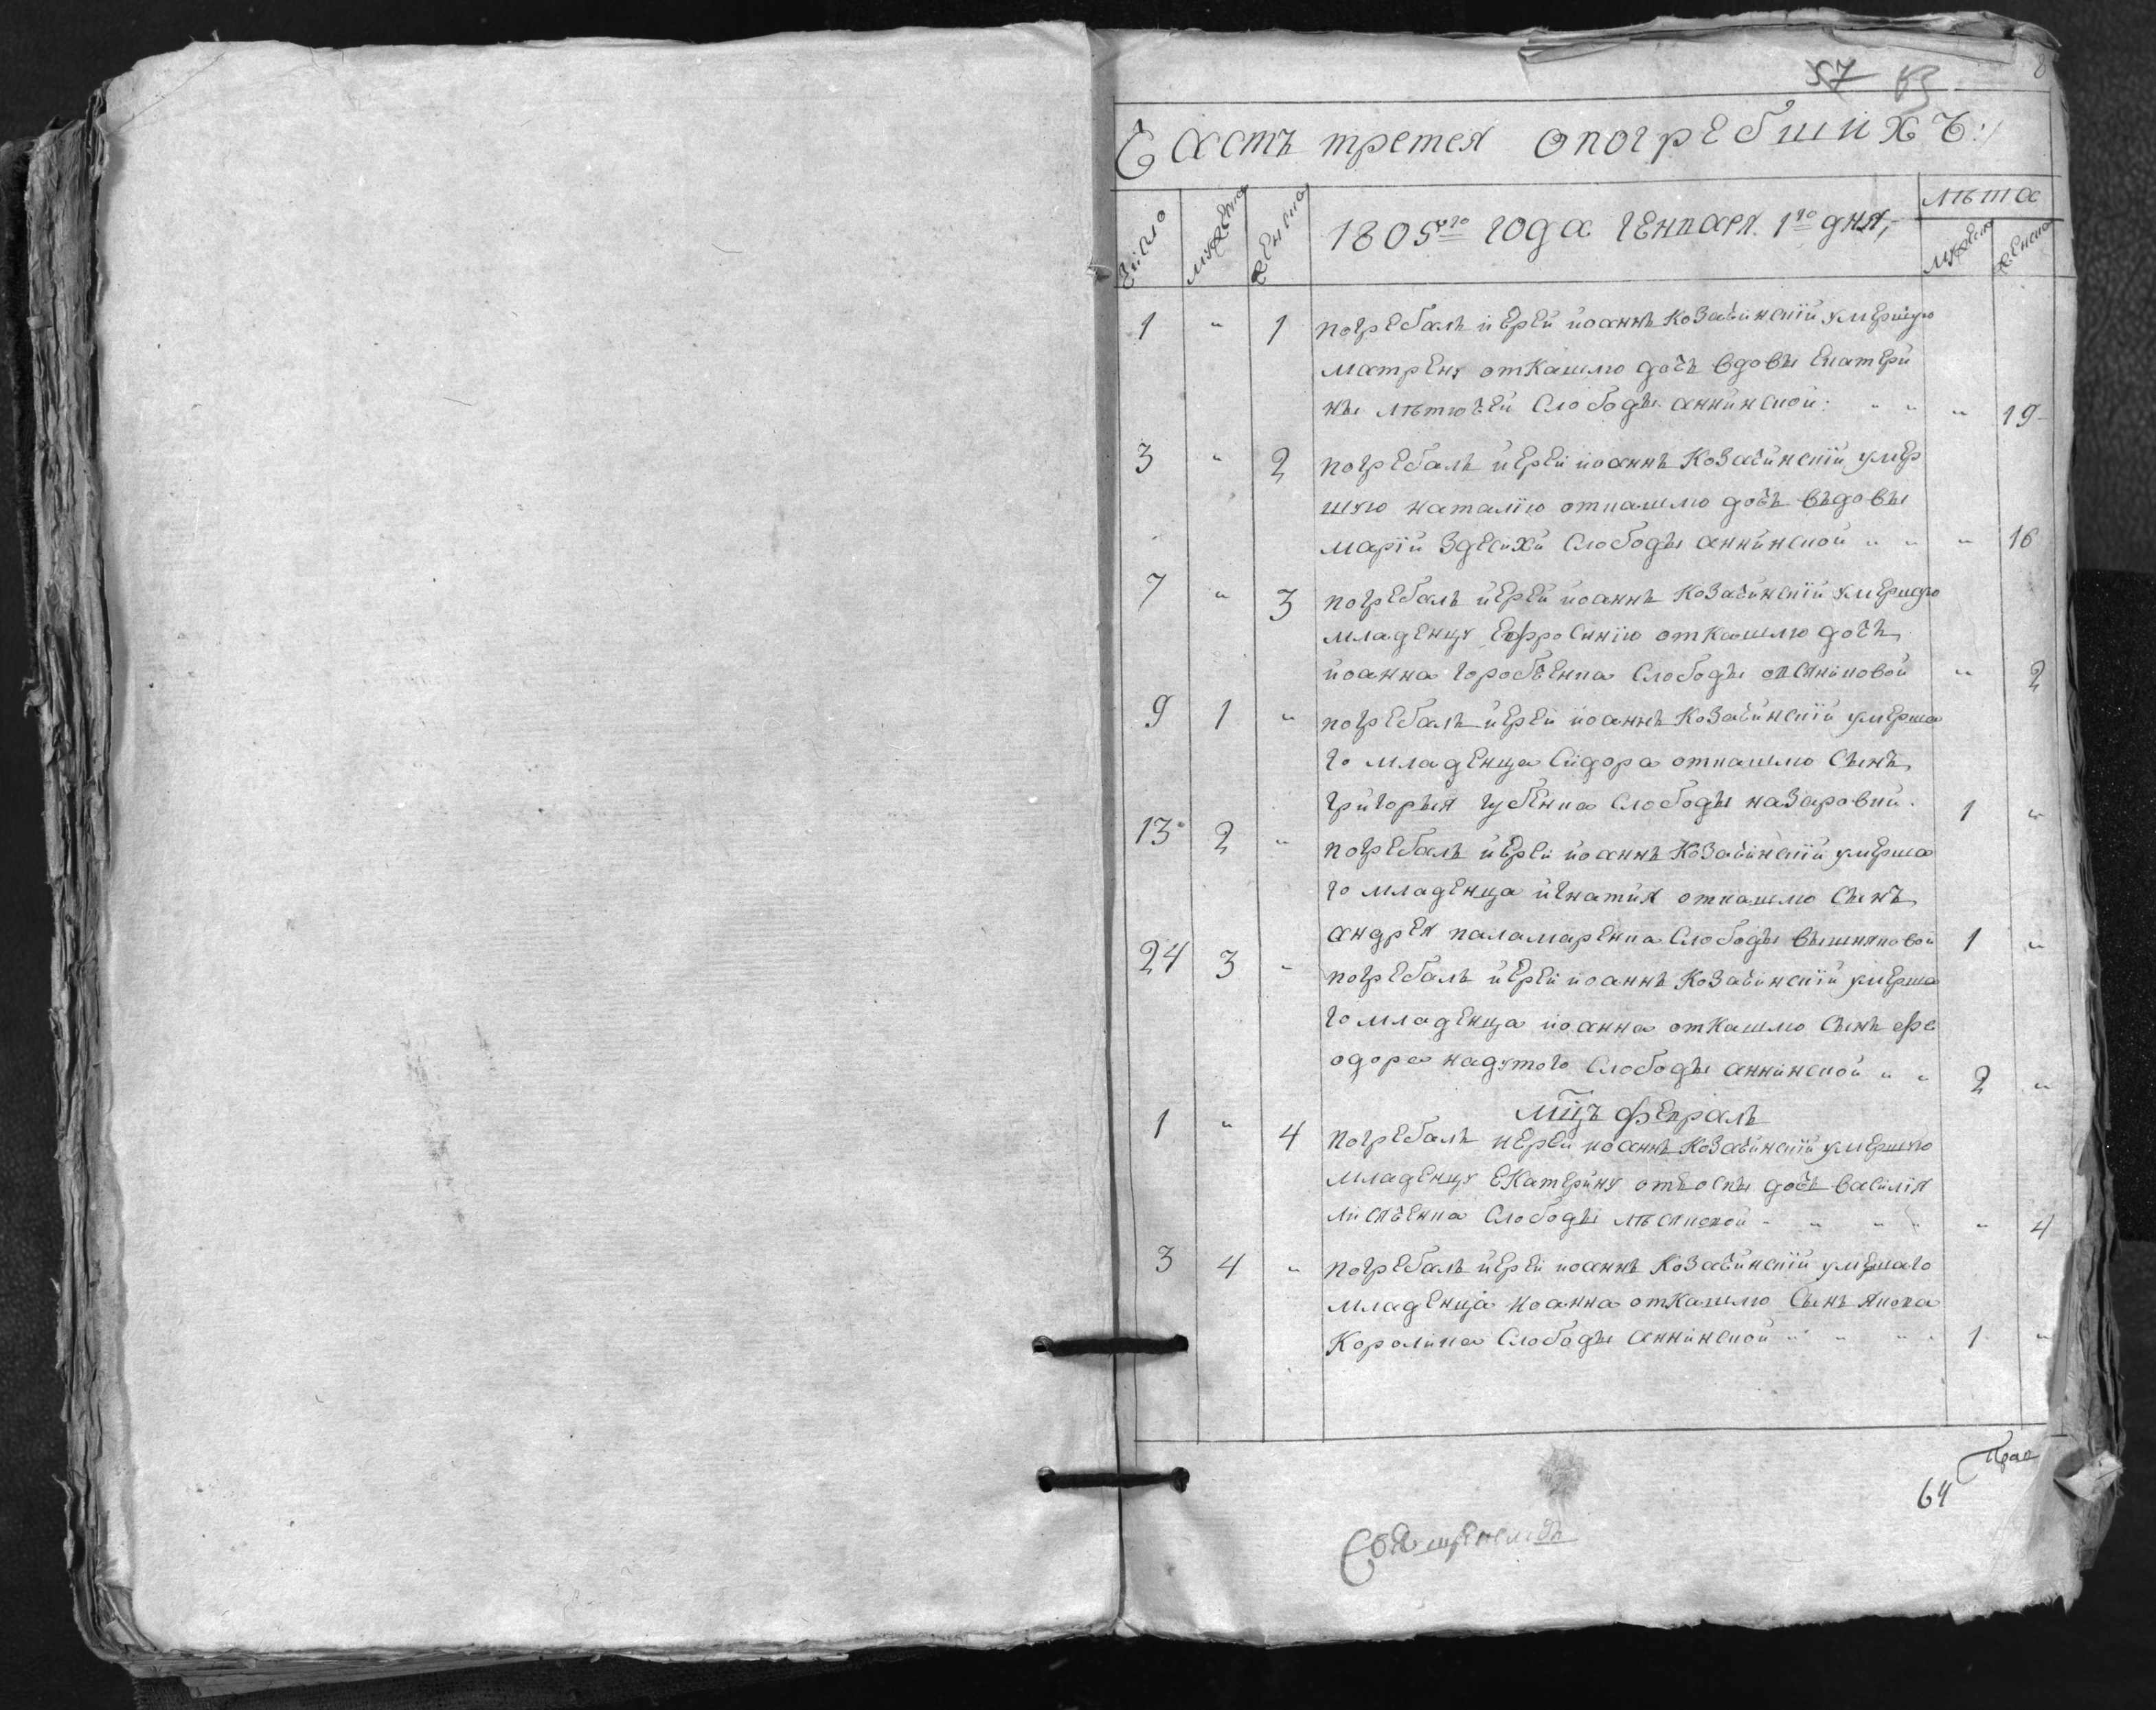 57 63
Часть третея опогребшихъ:
число мужеска женска 1805го года генъваря 1го дня, лѣта мужеска женска
1 " 1 погребалъ иерей иоаннъ Козачинский умершую
матрену откашлю дочь вдовы Екатери
ны лѣтючей слободы аннинской: " " " 19
3 " 2 погребалъ иерей иоаннъ Козачинский умер
шую наталию откашлю дочь въдовы
марии здесихи слободы аннинской " " " 16
7 " 3 погребалъ иерей иоаннъ Козачинский умершую
младенцу Ефросинию откашлю дочь
иоанна горобченка слободы олсяниковой " 2
9 1 " погребалъ иерей иоаннъ Козачинский умерша
го младенца сидора откашлю сынъ
григорыя губенка слободы назаровки 1 "
13 2 " погребалъ иерей иоаннъ Козачинский умерша
го младенца игнатия откашлю сынъ
андрея паламаренка слободы вышняковой 1 "
24 3 " погребалъ иерей иоаннъ Козачинский умерша
го младенца иоанна откашлю сынъ фе
одора надутого слободы аннинской " " 2 "
мцъ февраль
1 " 4 погребалъ иерей иоаннъ Козачинский умершую
младенцу Екатерину отъоспы дочь василия
лисѣченка слободы лѣсянской " " " " " 4
3 4 " погребалъ иерей иоаннъ Козачинский умершаго
младенца иоанна откашлю сынъ якова
Королика слободы аннинской " " " " 1 "
64